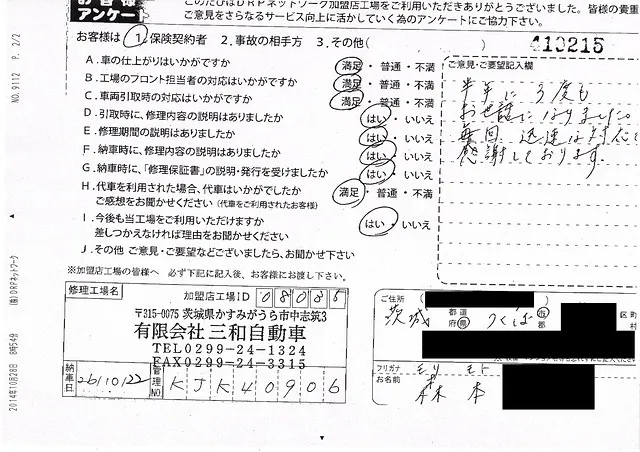 お客様
アンケート
このたびはDRPネットワーク加盟店工場をご利用いただきありがとうございました。皆様の貴重
ご意見をさらなるサービス向上に活かしていく為のアンケートにご協力下さい。
お客様は 1. 保険契約者 2. 事故の相手方 3. その他( )
410215
A. 車の仕上がりはいかがですか 満足・普通・不満
B. 工場のフロント担当者の対応はいかがですか 満足・普通・不満
C. 車両引取時の対応はいかがですか 満足・普通・不満
D. 引取時に、修理内容の説明はありましたか はい・いいえ
E. 修理期間の説明はありましたか はい・いいえ
F. 納車時に、修理内容の説明はありましたか はい・いいえ
G. 納車時に、「修理保証書」の説明・発行を受けましたか はい・いいえ
H. 代車を利用された場合、代車はいかがでしたか 満足・普通・不満
ご感想をお聞かせください (代車をご利用されたお客様)
I. 今後も当工場をご利用いただけますか はい・いいえ
差しつかえなければ理由をお聞かせください
J. その他 ご意見・ご要望などございましたら、お聞かせ下さい
ご意見・ご要望記入欄
半年に3度も
お世話になりました。
毎回、迅速な対応に
感謝しております。
※加盟店工場の皆様へ 必ず下記に記入後、お客様にお渡し下さい。
修理工場名
加盟店工場ID 08086
〒315-0075 茨城県かすみがうら市中志筑3
有限会社三和自動車
TEL0299-24-1324
FAX0299-24-3315
納車日 26/10/22
管理NO. KJK40906
ご住所
茨城 都道府県 つくば 市郡 区町村
フリガナ モリ モト
お名前 森 本
NO. 9112 P. 2/2
(株)DRPネットワーク
2014年10月28日 8時54分